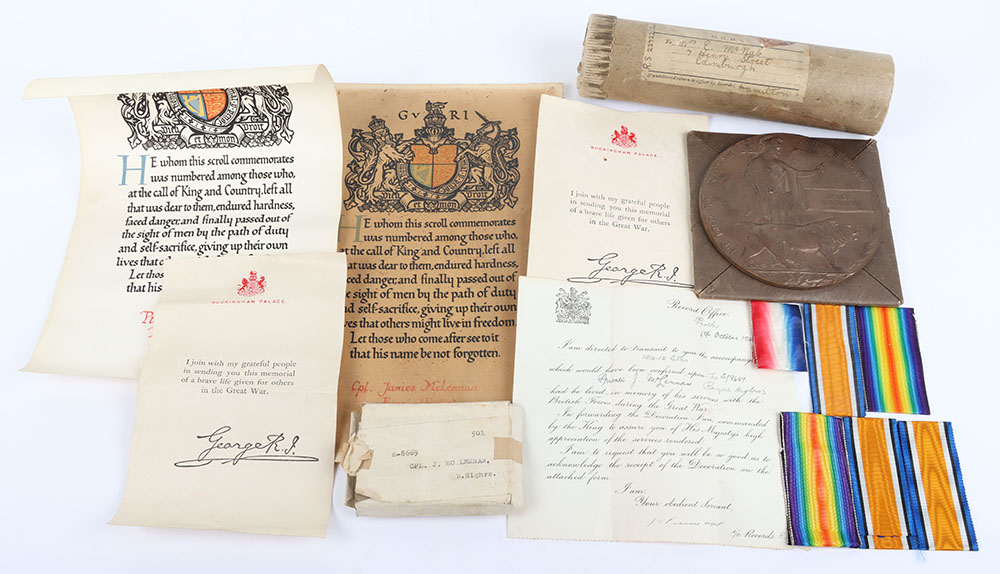 Dieu et mon Droit
HE whom this scroll commemorates
was numbered among those who,
at the call of King and Country, left all
that was dear to them, endured hardness,
faced danger, and finally passed out of
the sight of men by the path of duty
and self-sacrifice, giving up their own
lives that
Let those
his
I join with my grateful people
in sending you this memorial
of a brave life given for others
in the Great War.
George R.I.
BUCKINGHAM PALACE.
GVRI
Dieu et mon Droit
HE whom this scroll commemorates
was numbered among those who,
at the call of King and Country, left all
that was dear to them, endured hardness,
faced danger, and finally passed out of
the sight of men by the path of duty
and self-sacrifice, giving up their own
lives that others might live in freedom.
Let those who come after see to it
that his name be not forgotten.
Cpl. James McLennan
BUCKINGHAM PALACE.
I join with my grateful people
in sending you this memorial
of a brave life given for others
in the Great War.
George R.I.
501
S-8669
CPL. J. MC LENNAN,
R.Highrs.
Record Office,
Perth
October
I am directed to transmit to you the accompanying
1914-15 Star
which would have been conferred upon
J. McLennan
had he lived in memory of his services with the
British Forces during the Great War.
In forwarding the Decoration I am commanded
by the King to assure you of His Majesty's high
appreciation of the services rendered.
I am to request that you will be so good as to
acknowledge the receipt of the Decoration on the
attached form.
I am,
Your obedient Servant,
i/c Records
E. McNab
Street
Edinburgh
Hamilton